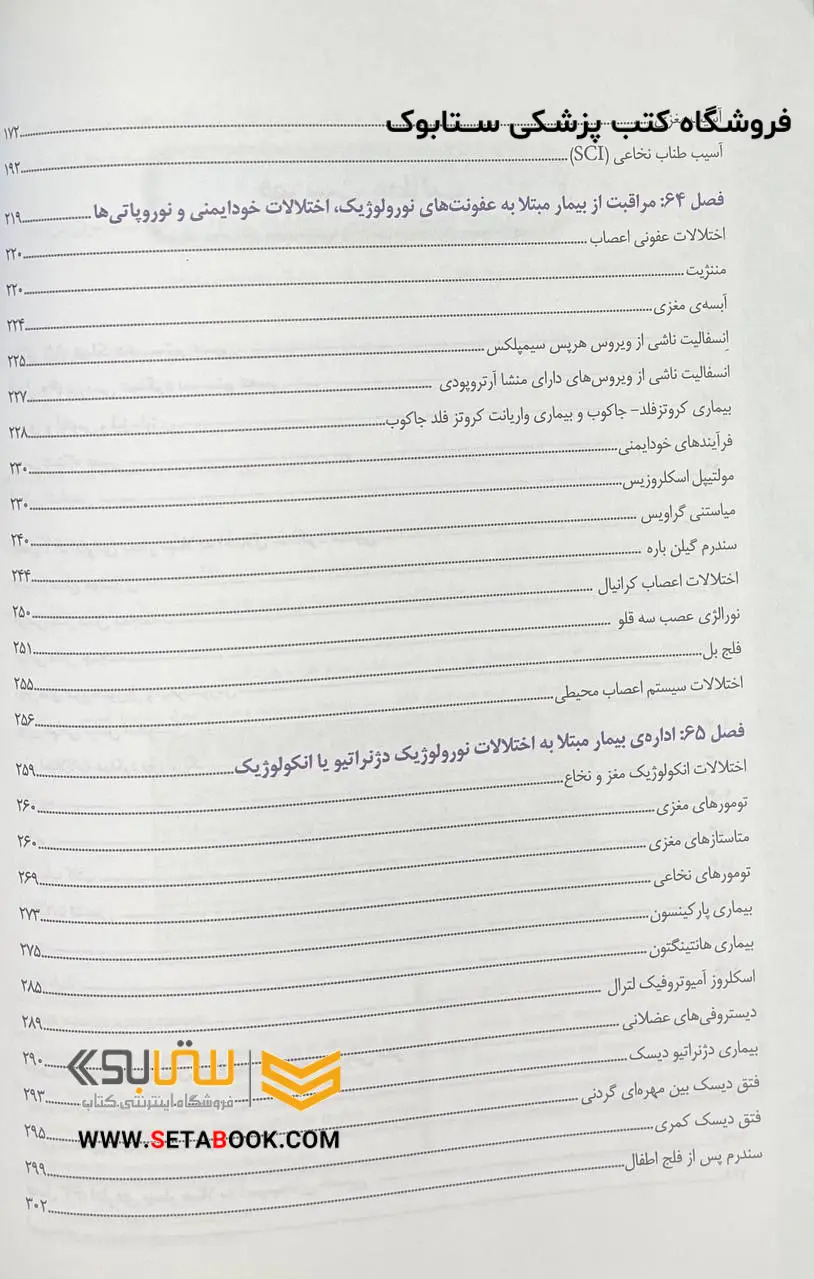 فروشگاه کتب پزشکی ستابوک
آسیب مغزی ۱۷۲
آسیب طناب نخاعی (SCI) ۱۹۲
فصل ۶۴: مراقبت از بیمار مبتلا به عفونت‌های نورولوژیک، اختلالات خودایمنی و نوروپاتی‌ها ۲۱۹
اختلالات عفونی اعصاب ۲۲۰
مننژیت ۲۲۰
آبسه‌ی مغزی ۲۲۴
اِنسفالیت ناشی از ویروس هرپس سیمپلکس ۲۲۵
انسفالیت ناشی از ویروس‌های دارای منشا آرتروپودی ۲۲۷
بیماری کروتزفلد- جاکوب و بیماری واریانت کروتز فلد جاکوب ۲۲۸
فرآیندهای خودایمنی ۲۳۰
مولتیپل اسکلروزیس ۲۳۰
میاستنی گراویس ۲۴۰
سندرم گیلن باره ۲۴۴
اختلالات اعصاب کرانیال ۲۵۰
نورالژی عصب سه قلو ۲۵۱
فلج بل ۲۵۵
اختلالات سیستم اعصاب محیطی ۲۵۶
فصل ۶۵: اداره‌ی بیمار مبتلا به اختلالات نورولوژیک دژنراتیو یا انکولوژیک ۲۵۹
اختلالات انکولوژیک مغز و نخاع ۲۶۰
تومورهای مغزی ۲۶۰
متاستازهای مغزی ۲۶۹
تومورهای نخاعی ۲۷۳
بیماری پارکینسون ۲۷۵
بیماری هانتینگتون ۲۸۵
اسکلروز آمیوتروفیک لترال ۲۸۹
دیستروفی‌های عضلانی ۲۹۰
بیماری دژنراتیو دیسک ۲۹۳
فتق دیسک بین مهره‌ای گردنی ۲۹۵
فتق دیسک کمری ۲۹۹
سندرم پس از فلج اطفال ۳۰۲
ستابوک
فروشگاه اینترنتی کتاب
WWW.SETABOOK.COM